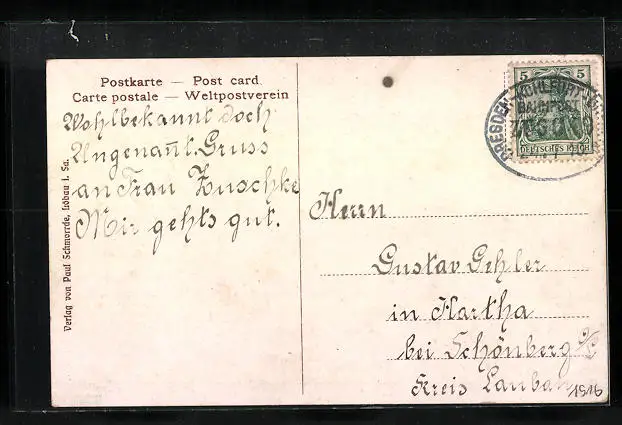 Postkarte — Post card
Carte postale — Weltpostverein
Wohlbekannt doch
Ungenan̄t. Gruss
an Frau Zuschke
Mir gehts gut.
Verlag von Paul Schmorrde, Löbau i. Sa.
5 5
DEUTSCHES REICH
DRESDEN
BAHNPOST
Herrn
Gustav Gehler
in Hartha
bei Schönberg O/L
Kreis Lauban
1916